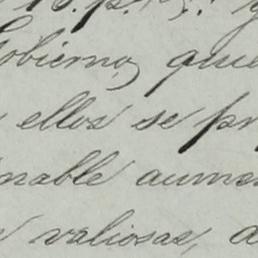 Gobierno, que
ellos se pr
nable aumen
valiosas, a